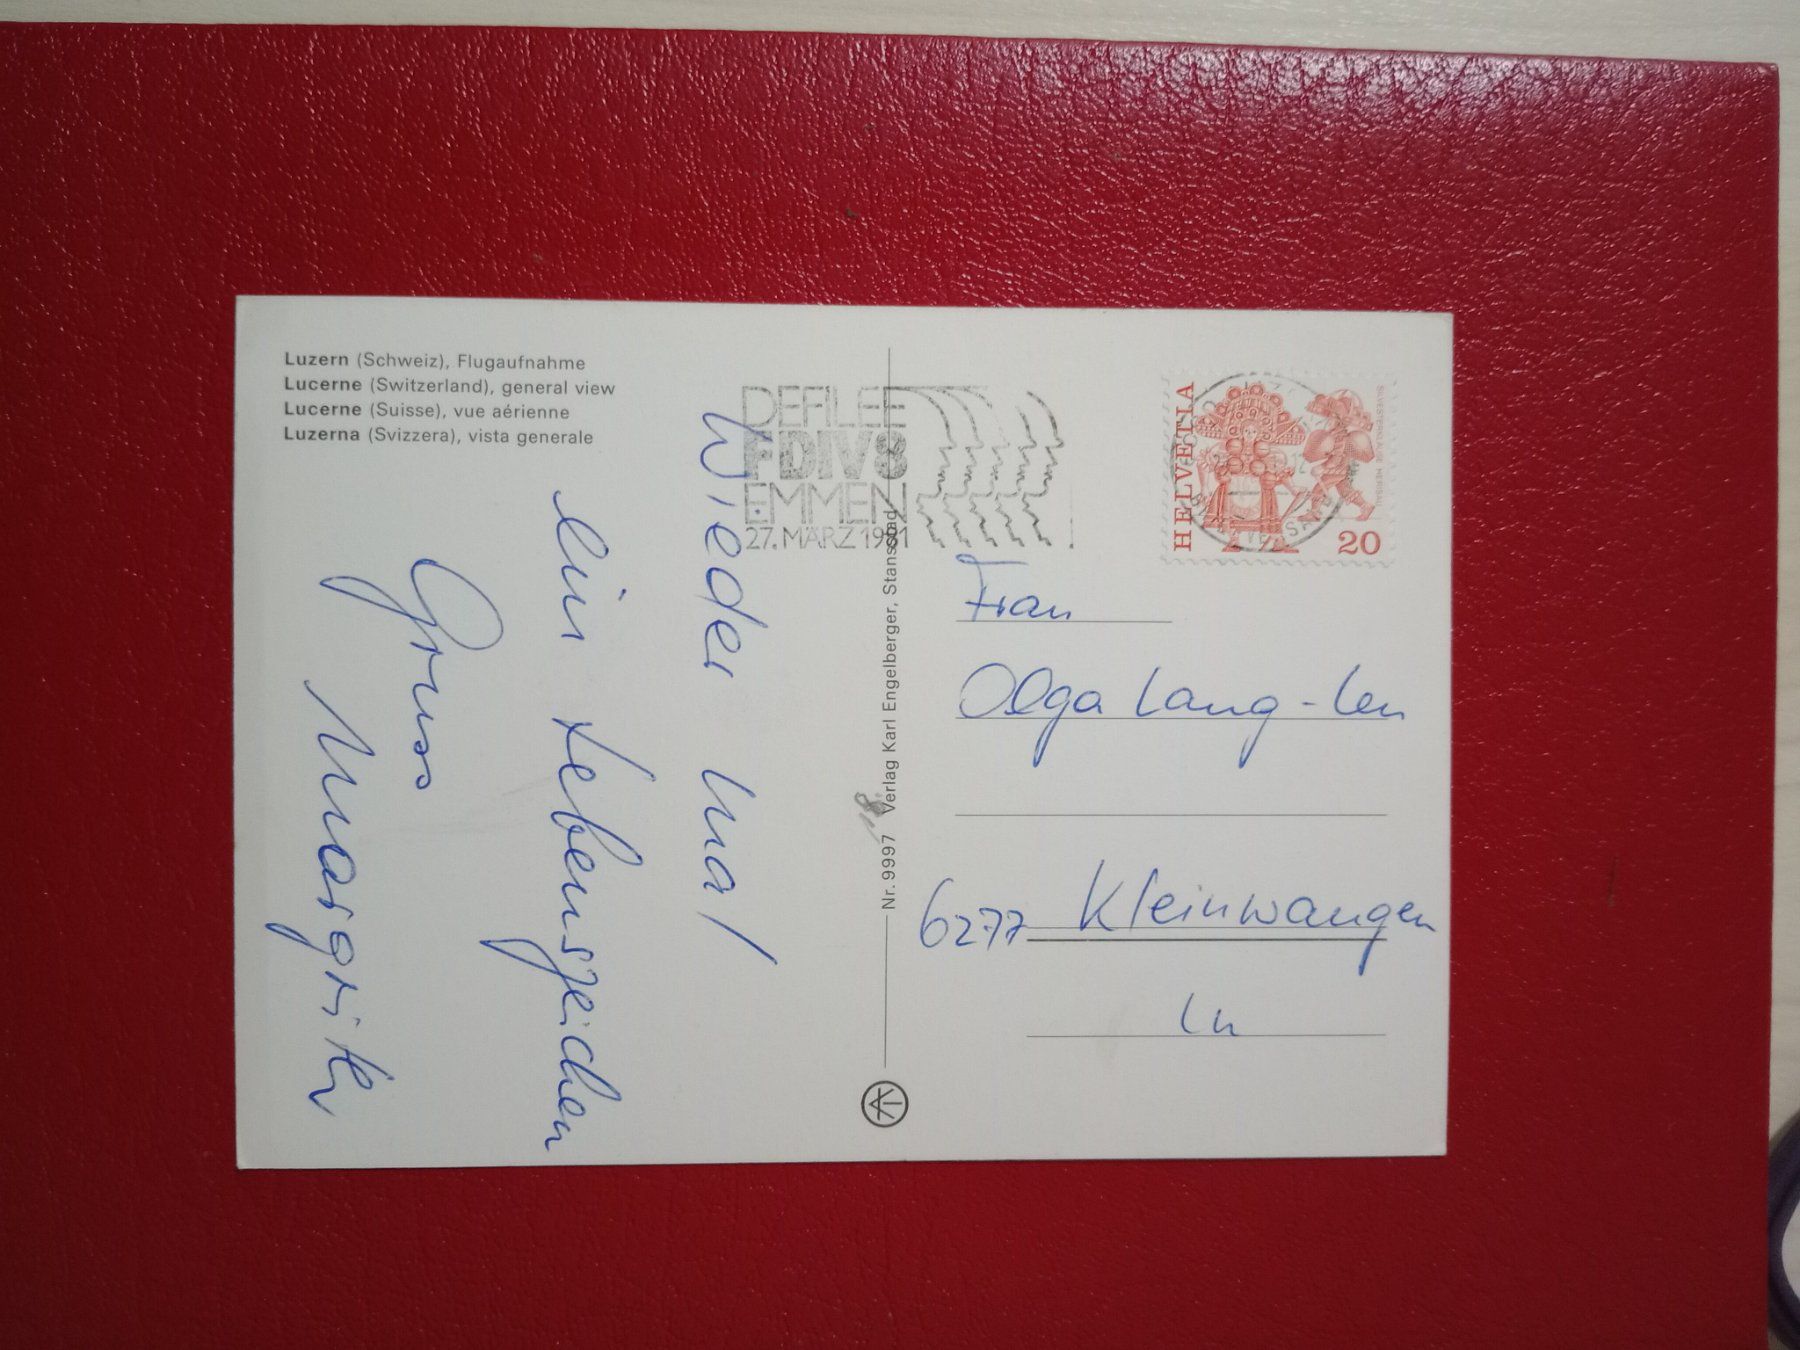 Luzern (Schweiz), Flugaufnahme
Lucerne (Switzerland), general view
Lucerne (Suisse), vue aérienne
Luzerna (Svizzera), vista generale
Wieder mal
ein Lebenszeichen
Gruss
Margrith
DEFILEE
FDIV8
EMMEN
27. MÄRZ 1981
HELVETIA
SILVESTERKLÄUSE HERISAU
20
Nr. 9997 Verlag Karl Engelberger, Stansstad
Frau
Olga Lang-Leu
6277 Kleinwangen
Lu